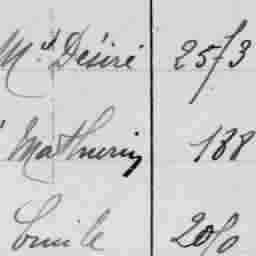 Md Désiré 2573
Mathurin 188
Emile